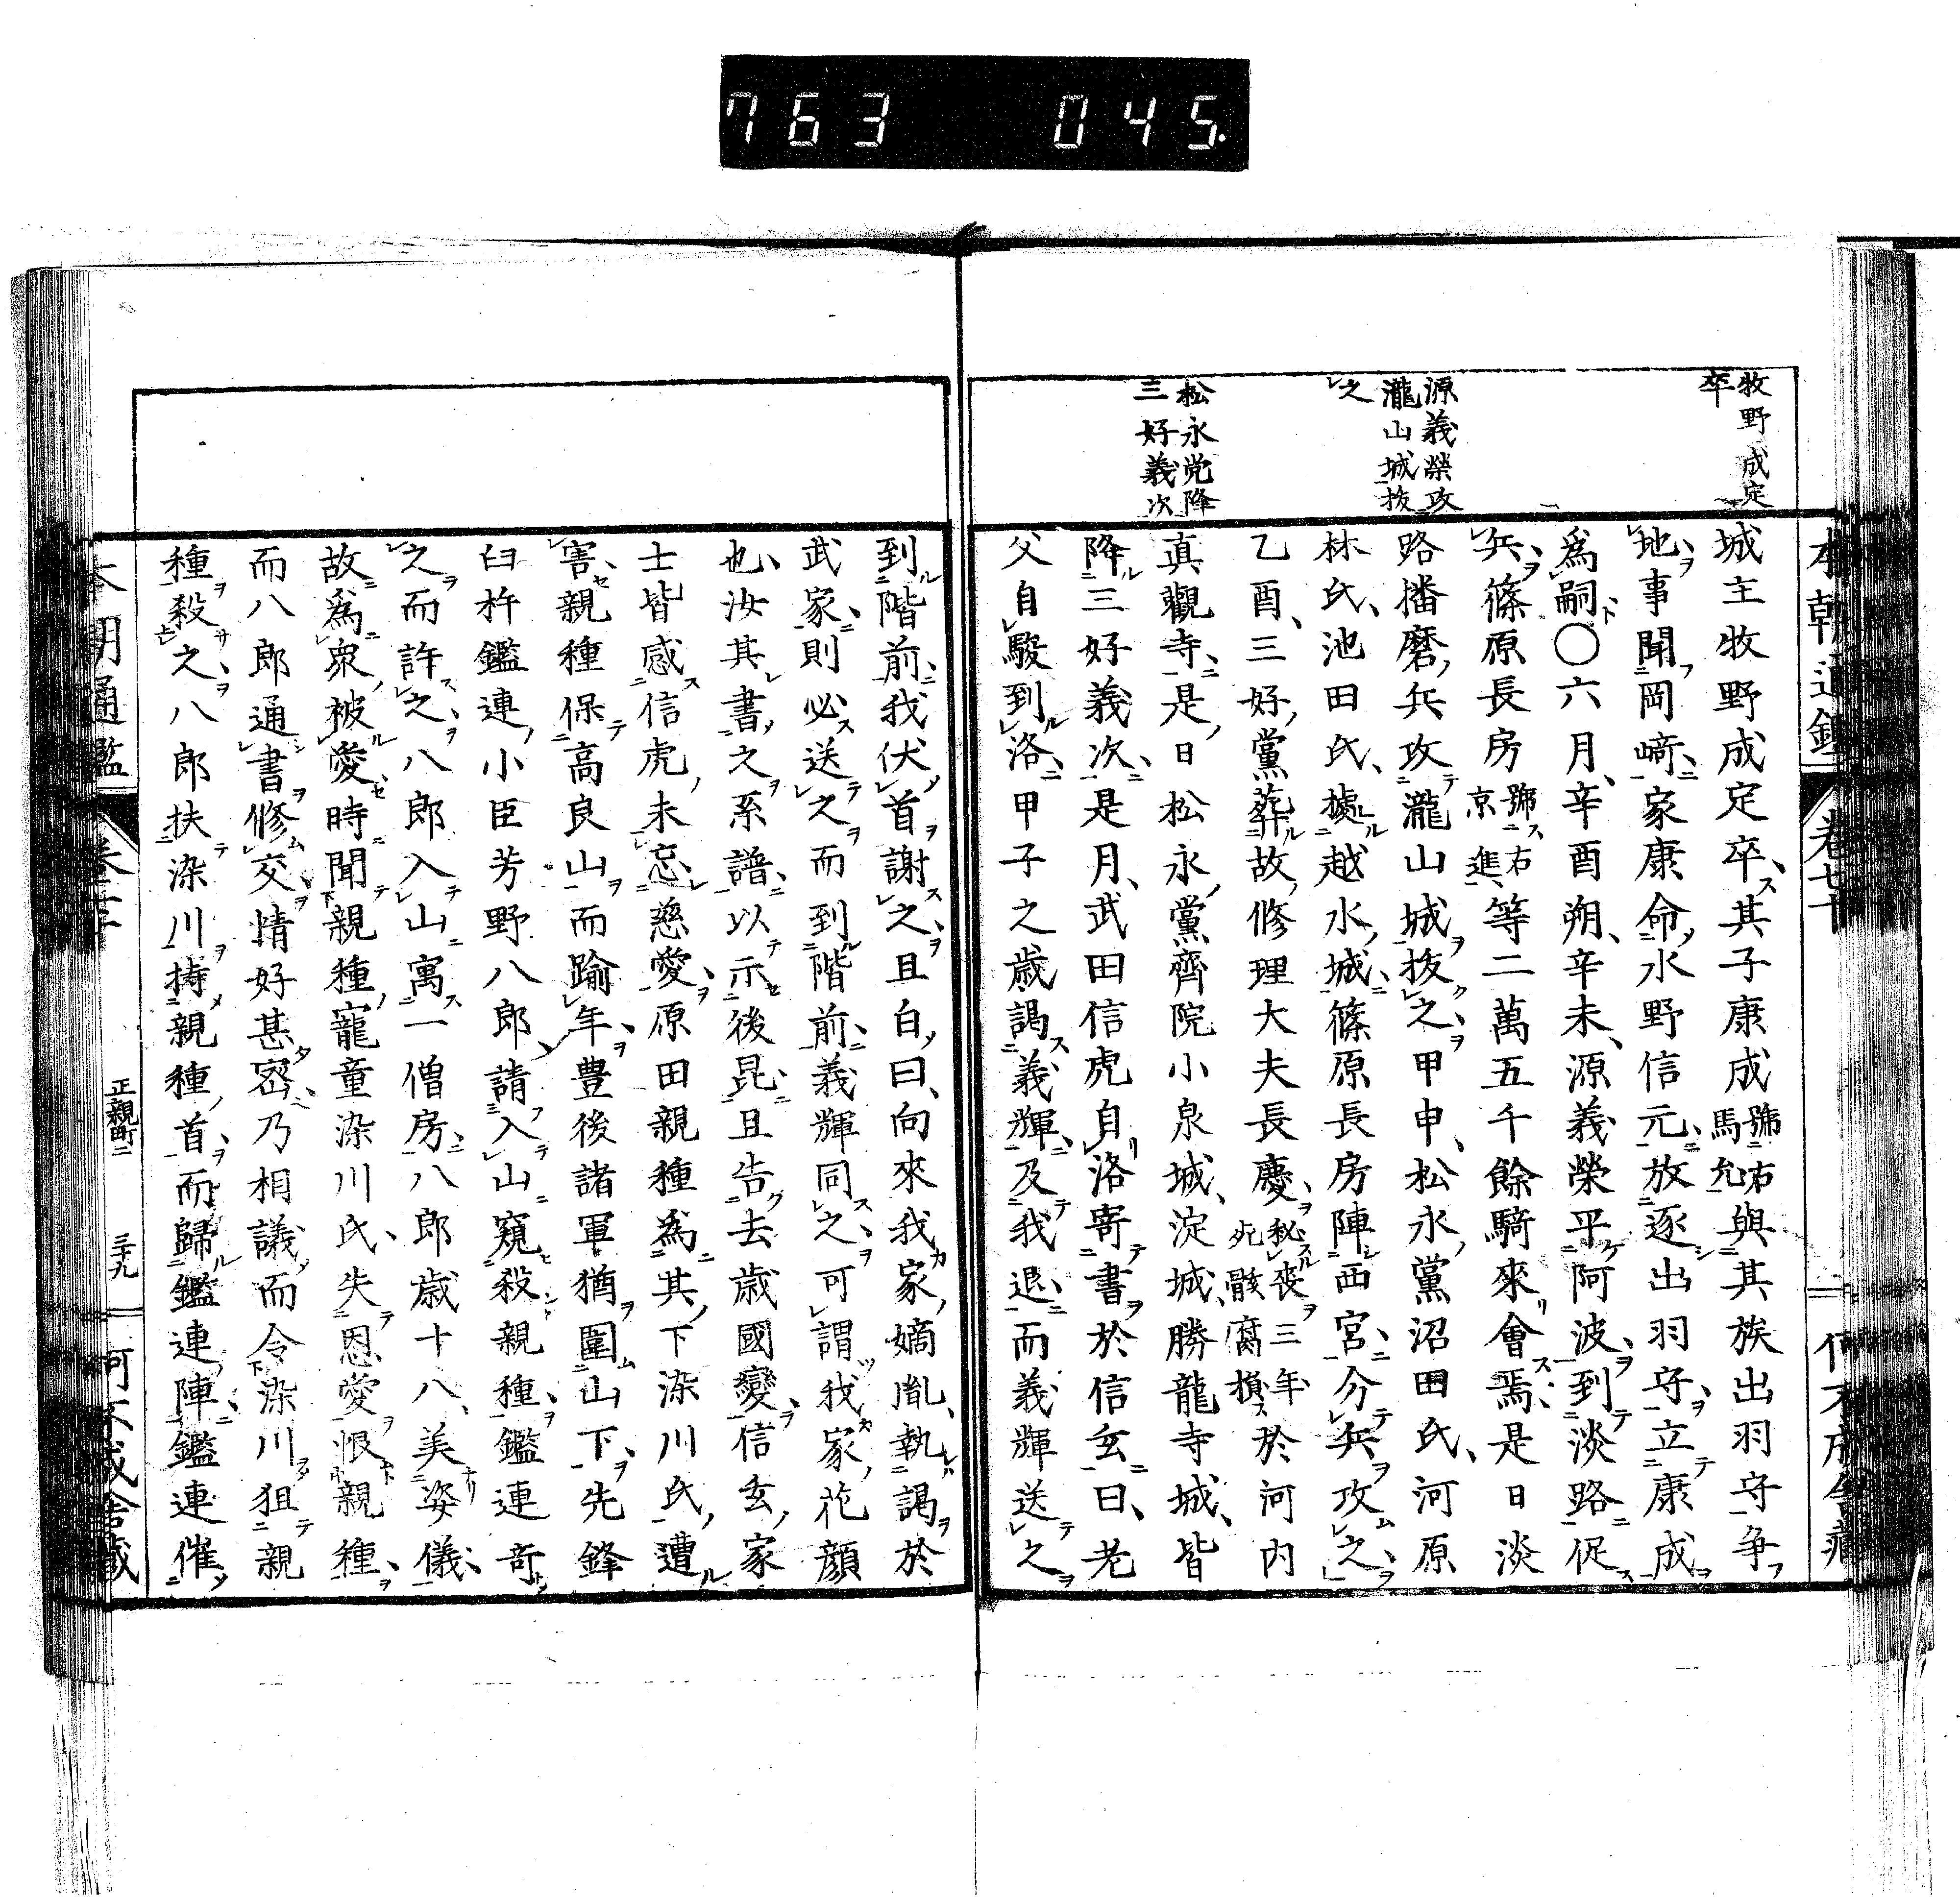 763 045.
牧野成定
卒
源義榮攻
瀧山城抜
之
松永党降
三好義次
本朝通鑑 卷七十
城主牧野成定卒其子康成號右馬允與其族出羽守爭
地事聞岡﨑家康命水野信元放逐出羽守立康成
爲嗣○六月辛酉朔辛未源義榮平阿波到淡路促
兵篠原長房號右京進等二萬五千餘騎來會焉是日淡
路播磨兵攻瀧山城抜之甲申松永黨沼田氏河原
林氏池田氏據越水城篠原長房陣西宮分兵攻之
乙酉三好黨葬故修理大夫長慶秘喪三年死骸腐損於河内
真觀寺是日松永黨齊院小泉城淀城勝龍寺城皆
降三好義次是月武田信虎自洛寄書於信玄曰老
父自駿到洛甲子之歳謁義輝及我退而義輝送之
到階前我伏首謝之且白曰向來我家嫡胤執謁於
武家則必送之而到階前義輝同之可謂我家花顔
也汝其書之系譜以示後昆且告去歳國變信玄家
士皆感信虎未忘慈愛原田親種爲其下染川氏遭
害親種保高良山而踰年豊後諸軍猶圍山下先鋒
臼杵鑑連小臣芳野八郎請入山窺殺親種鑑連奇
之而許之八郎入山寓一僧房八郎歳十八美姿儀
故爲衆被愛時聞親種寵童染川氏失恩愛恨親種
而八郎通書修交情好甚密乃相議而令染川狙親
種殺之八郎扶染川持親種首而歸鑑連陣鑑連催
本朝通鑑 卷七十 正親町二 三十九